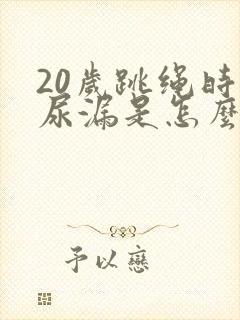 20歲跳绳時
尿漏是怎麼
予以戀